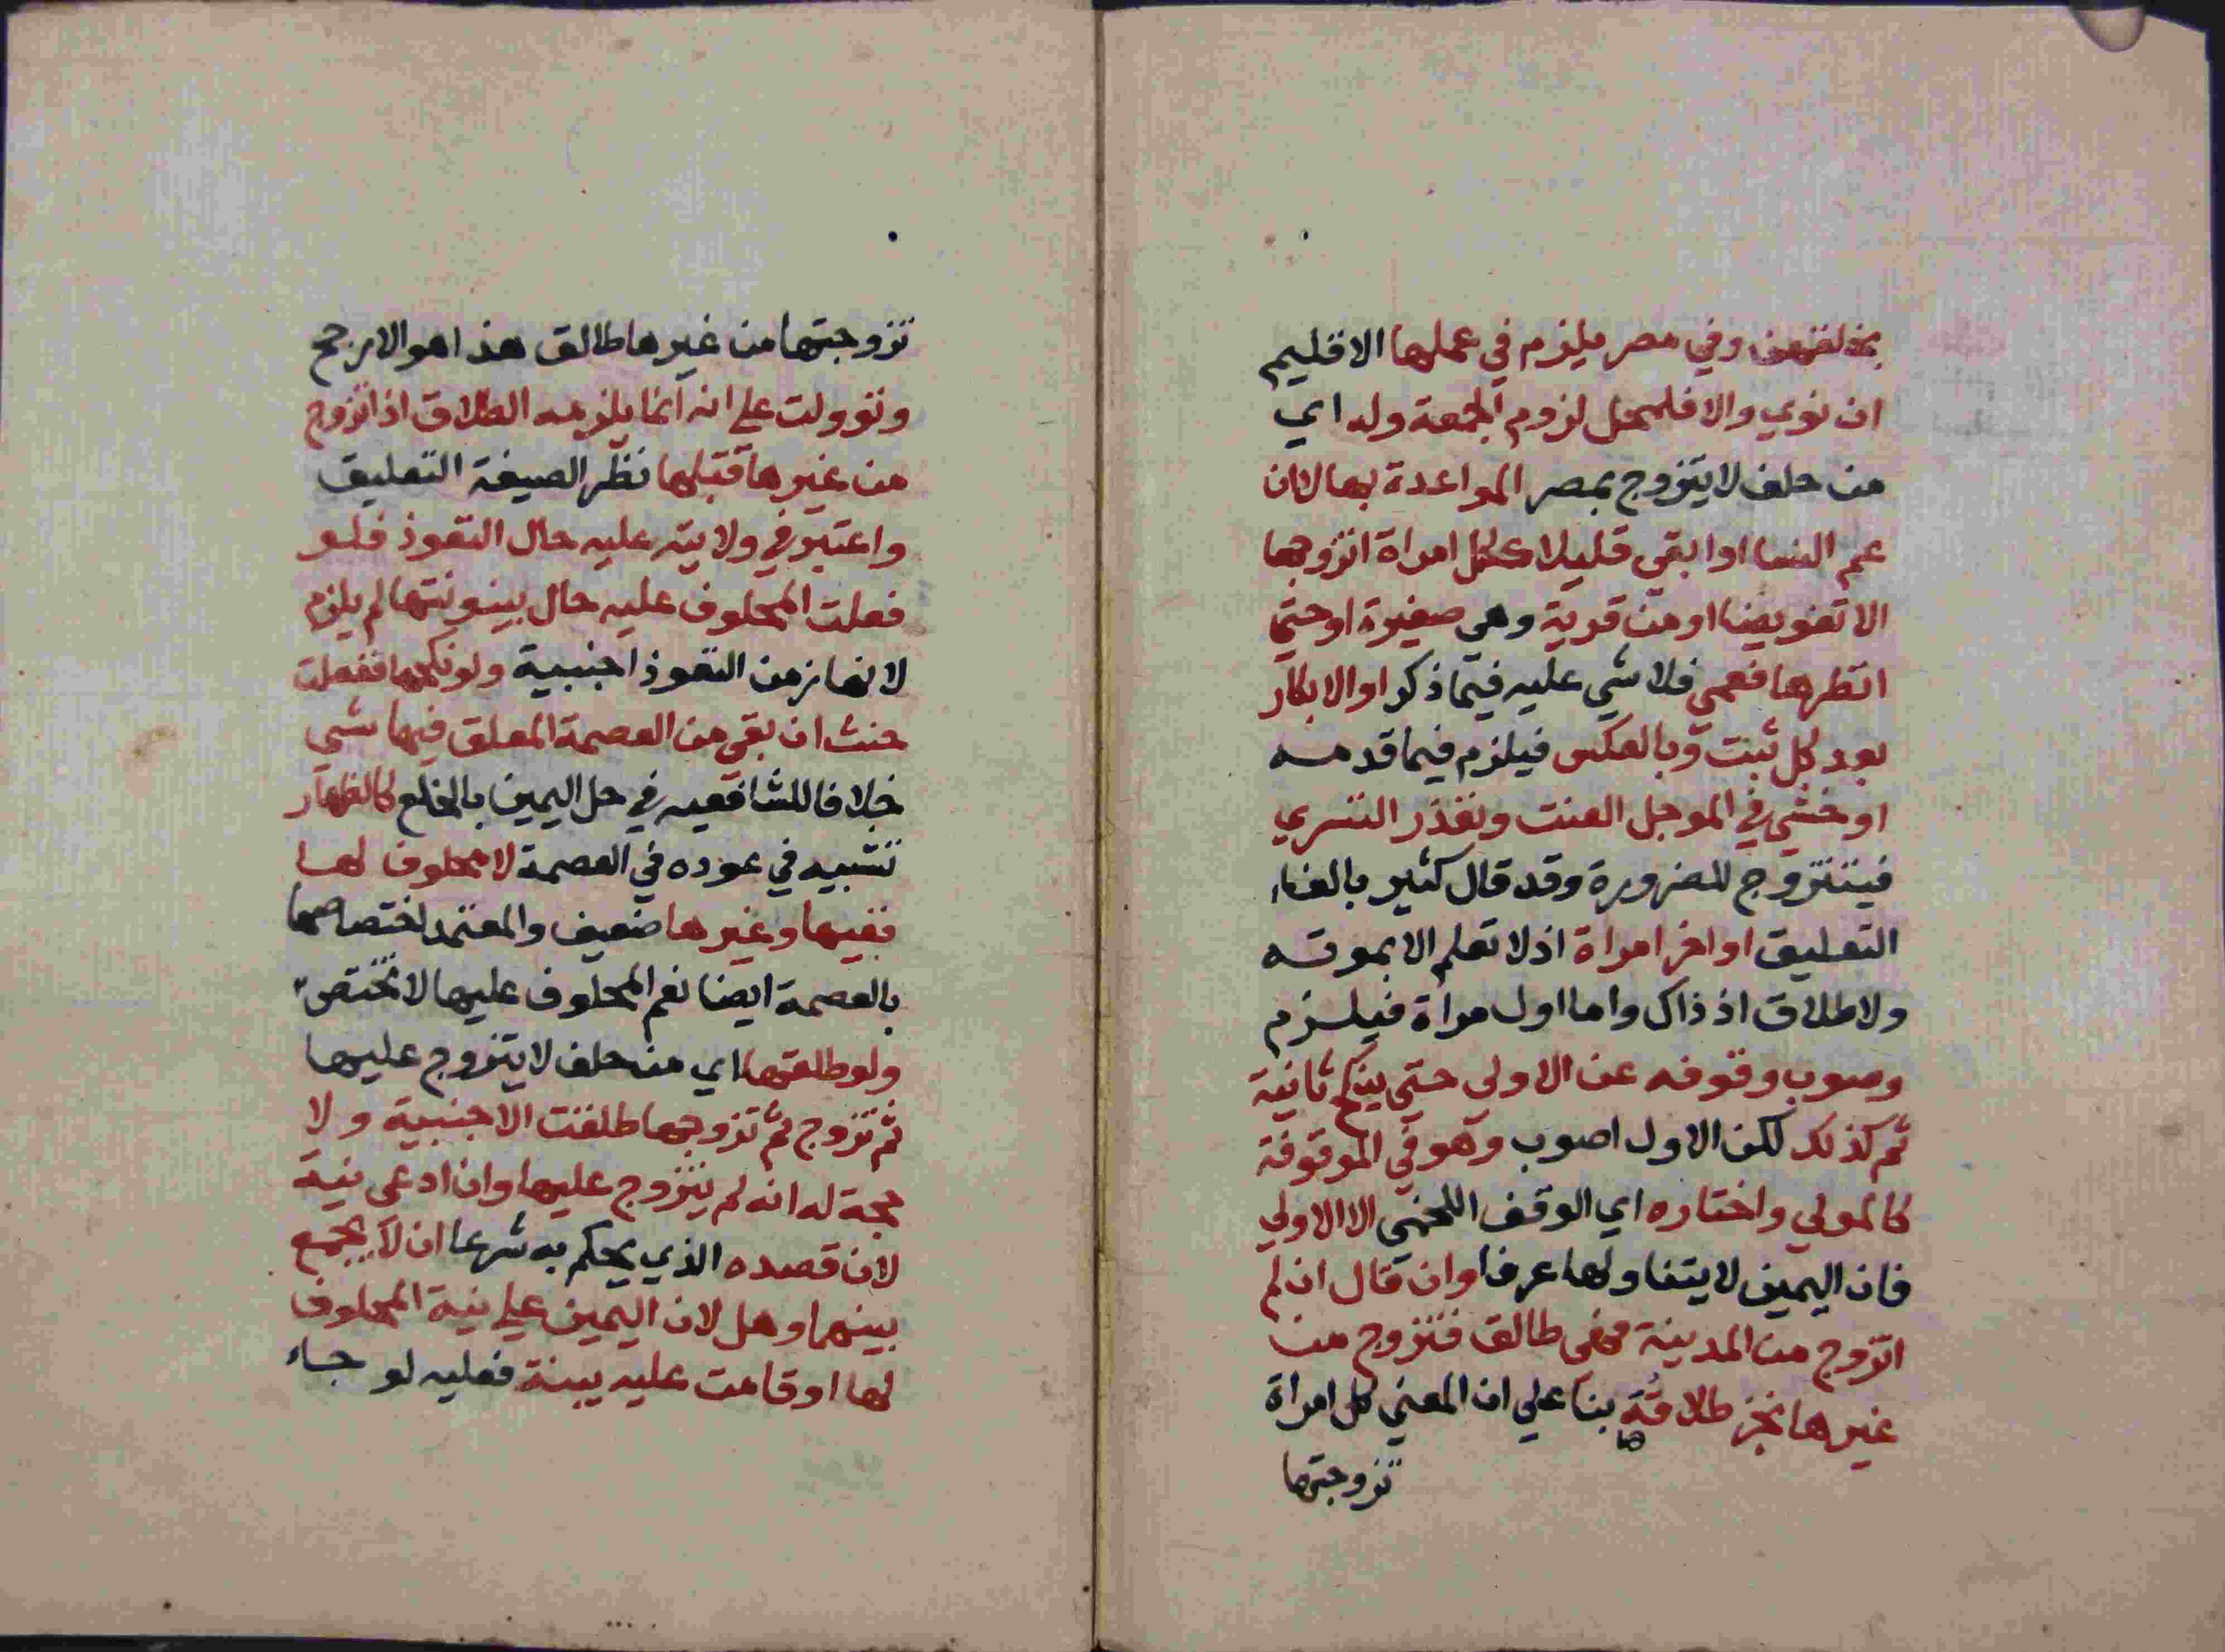 بخلقهن وفي مصر يلزم في عملها الاقليم
ان نوي والا فلمحل لزوم الجمعة وله اي
من حلف لا يتزوج بمصر المواعدة بها لا ان
عم النسا او ابقي قليلا ككل امراة اتزوجها
الا تفويضا او من قرية وهي صغيرة او حتي
انظرها فعمي فلا شي عليه فيما ذكر او الابكار
بعد كل ثبت وبالعكس فيلزم فيما قدمه
او خشي في الموجل العنت وتعذر التسري
فيتزوج للضرورة وقد قال كثير بالغاء
التعليق او اخر امراة اذ لا تعلم الا بموته
ولا طلاق اذ ذاك واما اول مراة فيلزم
وصوب وقوفه عن الاولى حتي ينكح ثانية
ثم كذلك لكن الاول اصوب وهو في الموقوفة
كالمولي واختاره اي الوقف اللخمي الا الاولي
فان اليمين لا يتناولها عرفا وان قال ان لم
اتزوج من المدينة فهي طالق فتزوج من
غيرها نجز طلاقها بنا علي ان المعني كل امراة
تزوجتها
تزوجتها من غيرها طالق هذا هو الارجح
وتوولت علي انه انما يلزمه الطلاق اذا تزوج
من غيرها قبلها نظر الصيغة التعليق
واعتبر في ولايته عليه حال النفوذ فلو
فعلت المحلوف عليه حال بينونتها لم يلزم
لانها زمن النفوذ اجنبية ولو نكحها ففعلت
حنث ان بقي من العصمة المعلق فيها شي
خلافا للشافعيه في حل اليمين بالخلع كالظهار
تشبيه في عوده في العصمة لا محلوف لها
ففيها وغيرها ضعيف والمعتمد اختصاصها
بالعصمة ايضا نعم المحلوف عليها لا تختص
ولو طلقها اي من حلف لا يتزوج عليها
ثم تزوج ثم تزوجها طلقت الاجنبية ولا
حجة له انه لم يتزوج عليها وان ادعى نية
لان قصده الذي يحكم به شرعا ان لا يجمع
بينهما وهل لان اليمين علي نية المحلوف
لها او قامت عليه بينة فعليه لو جاء